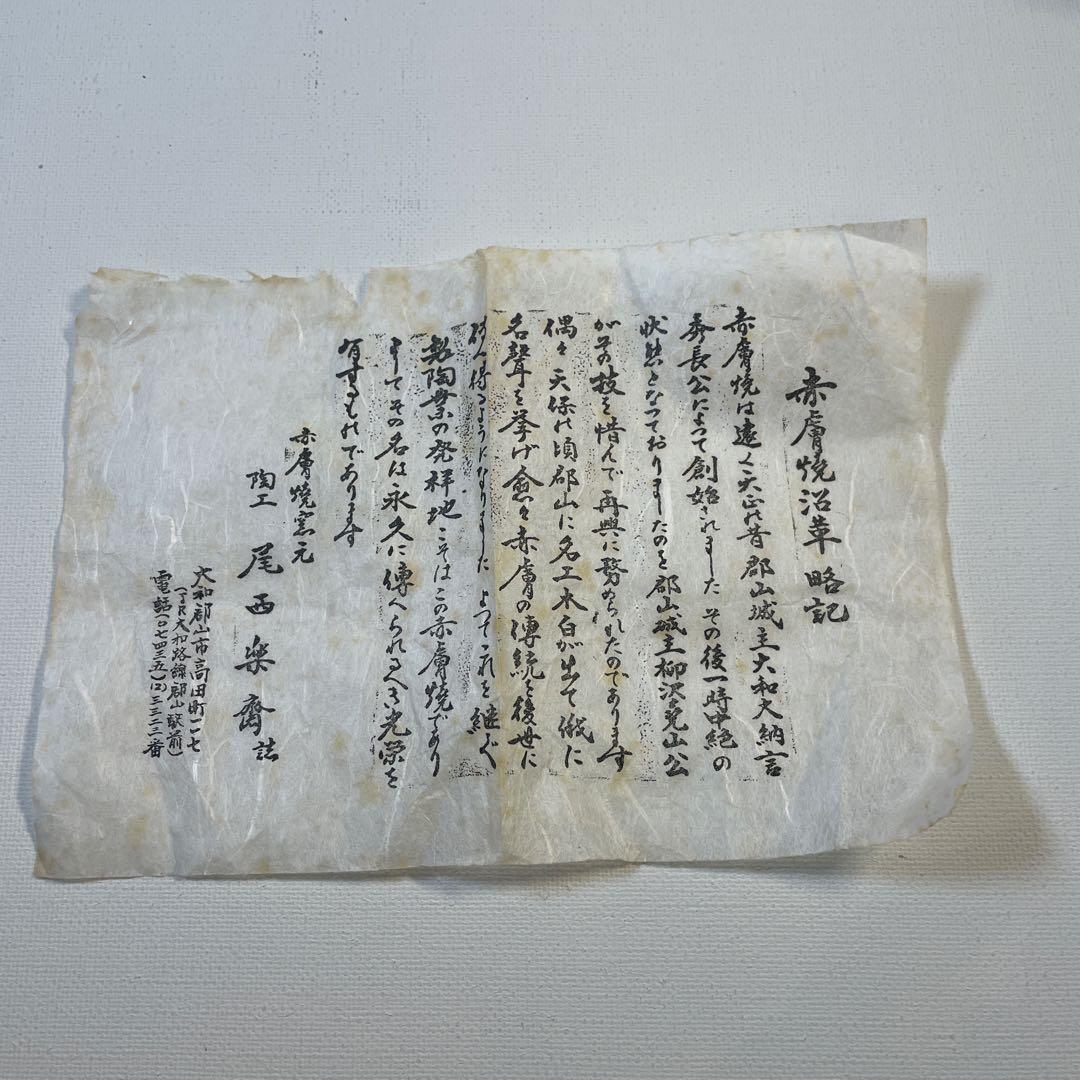 赤膚焼沿革略記
赤膚焼は遠く天正の昔郡山城主大和大納言
秀長公によつて創始されました その後一時中絶の
状態となつておりましたのを郡山城主柳沢尭山公
がその技を惜んで再興に努められたのであります
偶々天保の頃郡山に名工木白が出て俄に
名聲を挙げ愈々赤膚の傳統を後世に
得るようになりました よつてこれを継ぐ
製陶業の発祥地こそはこの赤膚焼であり
してその名は永久に傳へられるべき光榮を
有するものであります
赤膚焼窯元
陶工 尾西楽斎 誌
大和郡山市高田町一一七
(JR大和路線郡山駅前)
電話〇七四三五(二)三三二三番